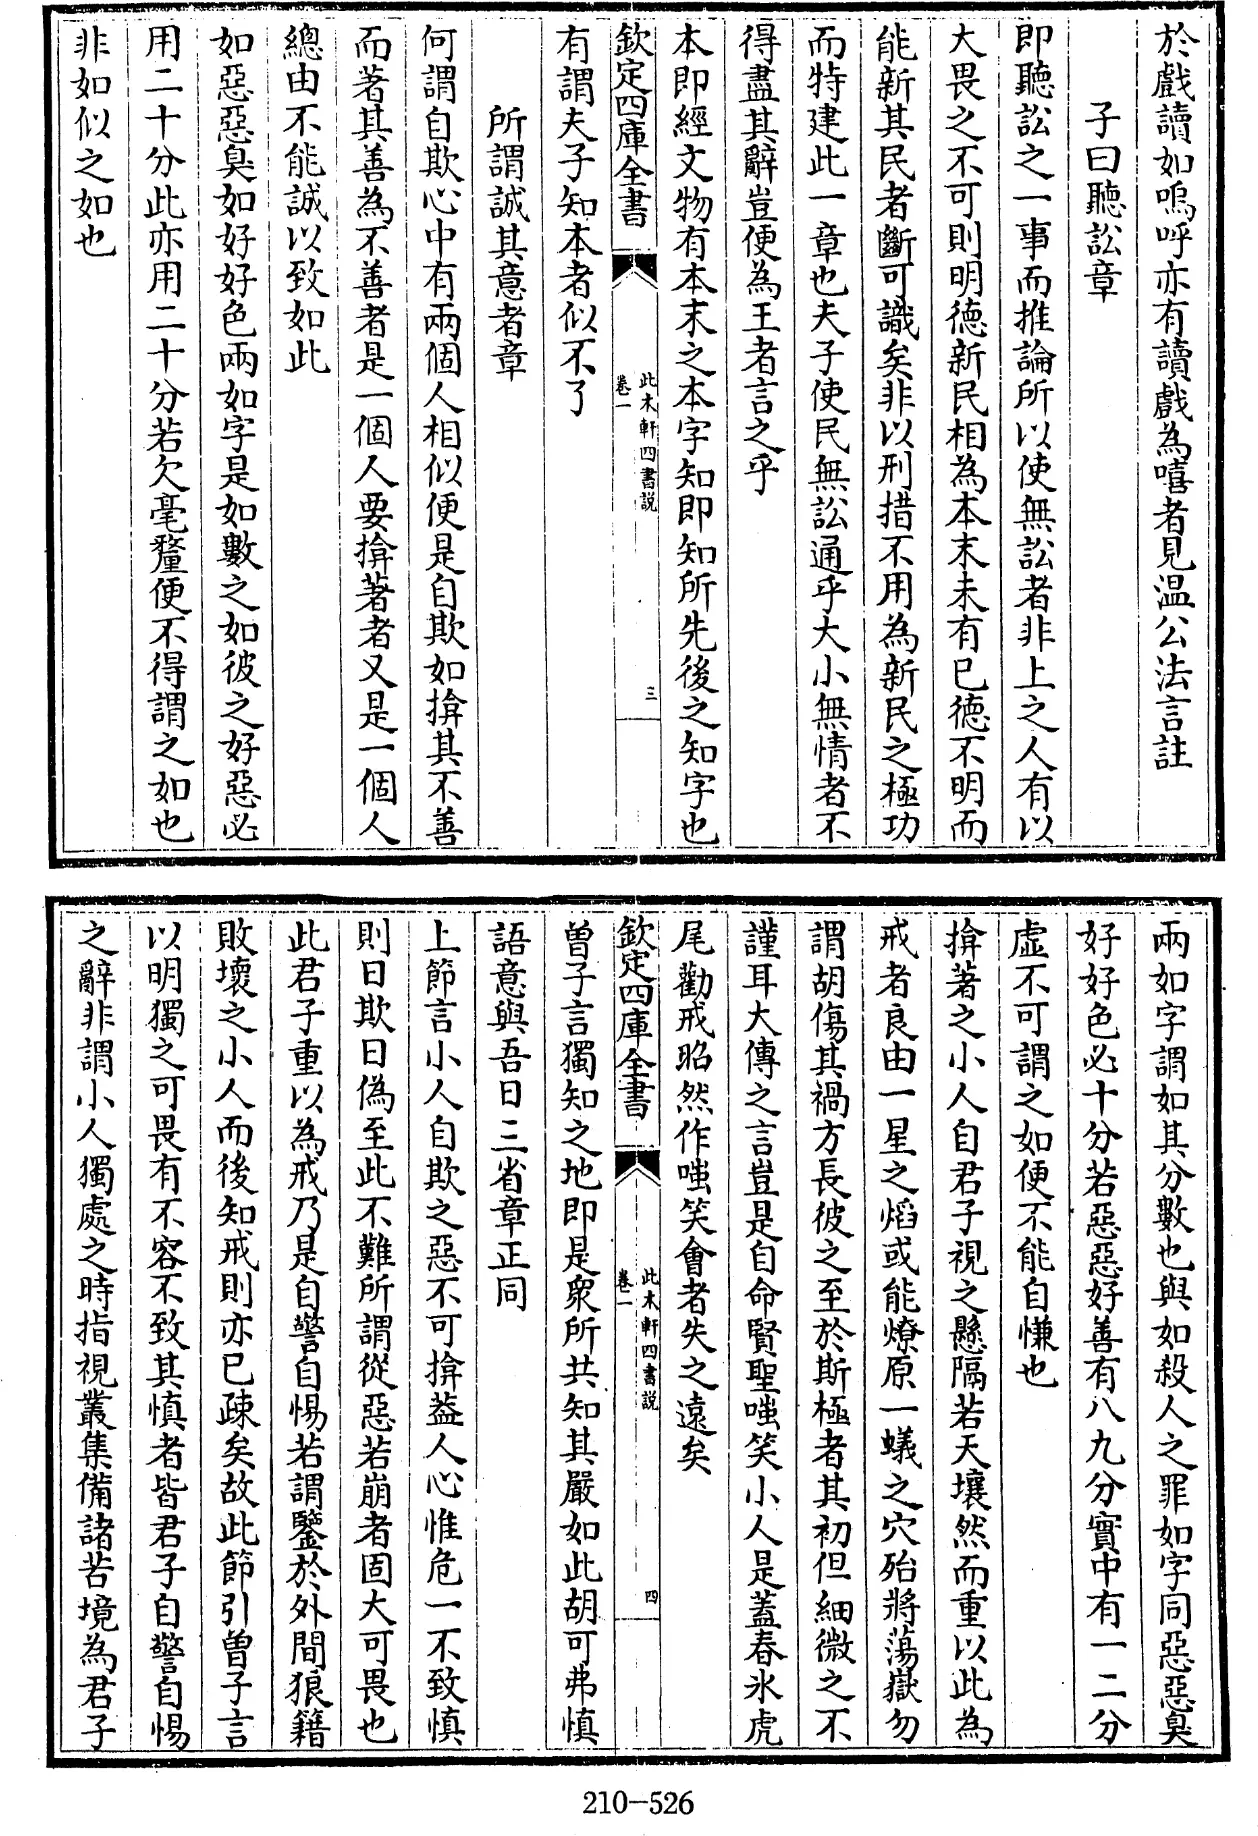 於戲讀如嗚呼亦有讀戲為嘻者見温公法言註
子曰聽訟章
即聽訟之一事而推論所以使無訟者非上之人有以
大畏之不可則明德新民相為本末未有已德不明而
能新其民者斷可識矣非以刑措不用為新民之極功
而特建此一章也夫子使民無訟通乎大小無情者不
得盡其辭豈便為王者言之乎
本即經文物有本末之本字知即知所先後之知字也
欽定四庫全書
此木軒四書説
卷一
三
有謂夫子知本者似不了
所謂誠其意者章
何謂自欺心中有兩個人相似便是自欺如揜其不善
而著其善為不善者是一個人要揜著者又是一個人
總由不能誠以致如此
如惡惡臭如好好色兩如字是如數之如彼之好惡必
用二十分此亦用二十分若欠毫釐便不得謂之如也
非如似之如也
兩如字謂如其分數也與如殺人之罪如字同惡惡臭
好好色必十分若惡惡好善有八九分實中有一二分
虛不可謂之如便不能自慊也
揜著之小人自君子視之懸隔若天壤然而重以此為
戒者良由一星之熖或能燎原一蟻之穴殆將蕩嶽勿
謂胡傷其禍方長彼之至於斯極者其初但細微之不
謹耳大傳之言豈是自命賢聖嗤笑小人是蓋春氷虎
尾勸戒昭然作嗤笑會者失之遠矣
欽定四庫全書
此木軒四書説
卷一
四
曽子言獨知之地即是衆所共知其嚴如此胡可弗慎
語意與吾日三省章正同
上節言小人自欺之惡不可揜葢人心惟危一不致慎
則日欺日偽至此不難所謂從惡若崩者固大可畏也
此君子重以為戒乃是自警自惕若謂鑒於外間狼籍
敗壞之小人而後知戒則亦已疎矣故此節引曽子言
以明獨之可畏有不容不致其慎者皆君子自警自惕
之辭非謂小人獨處之時指視叢集備諸苦境為君子
210-526